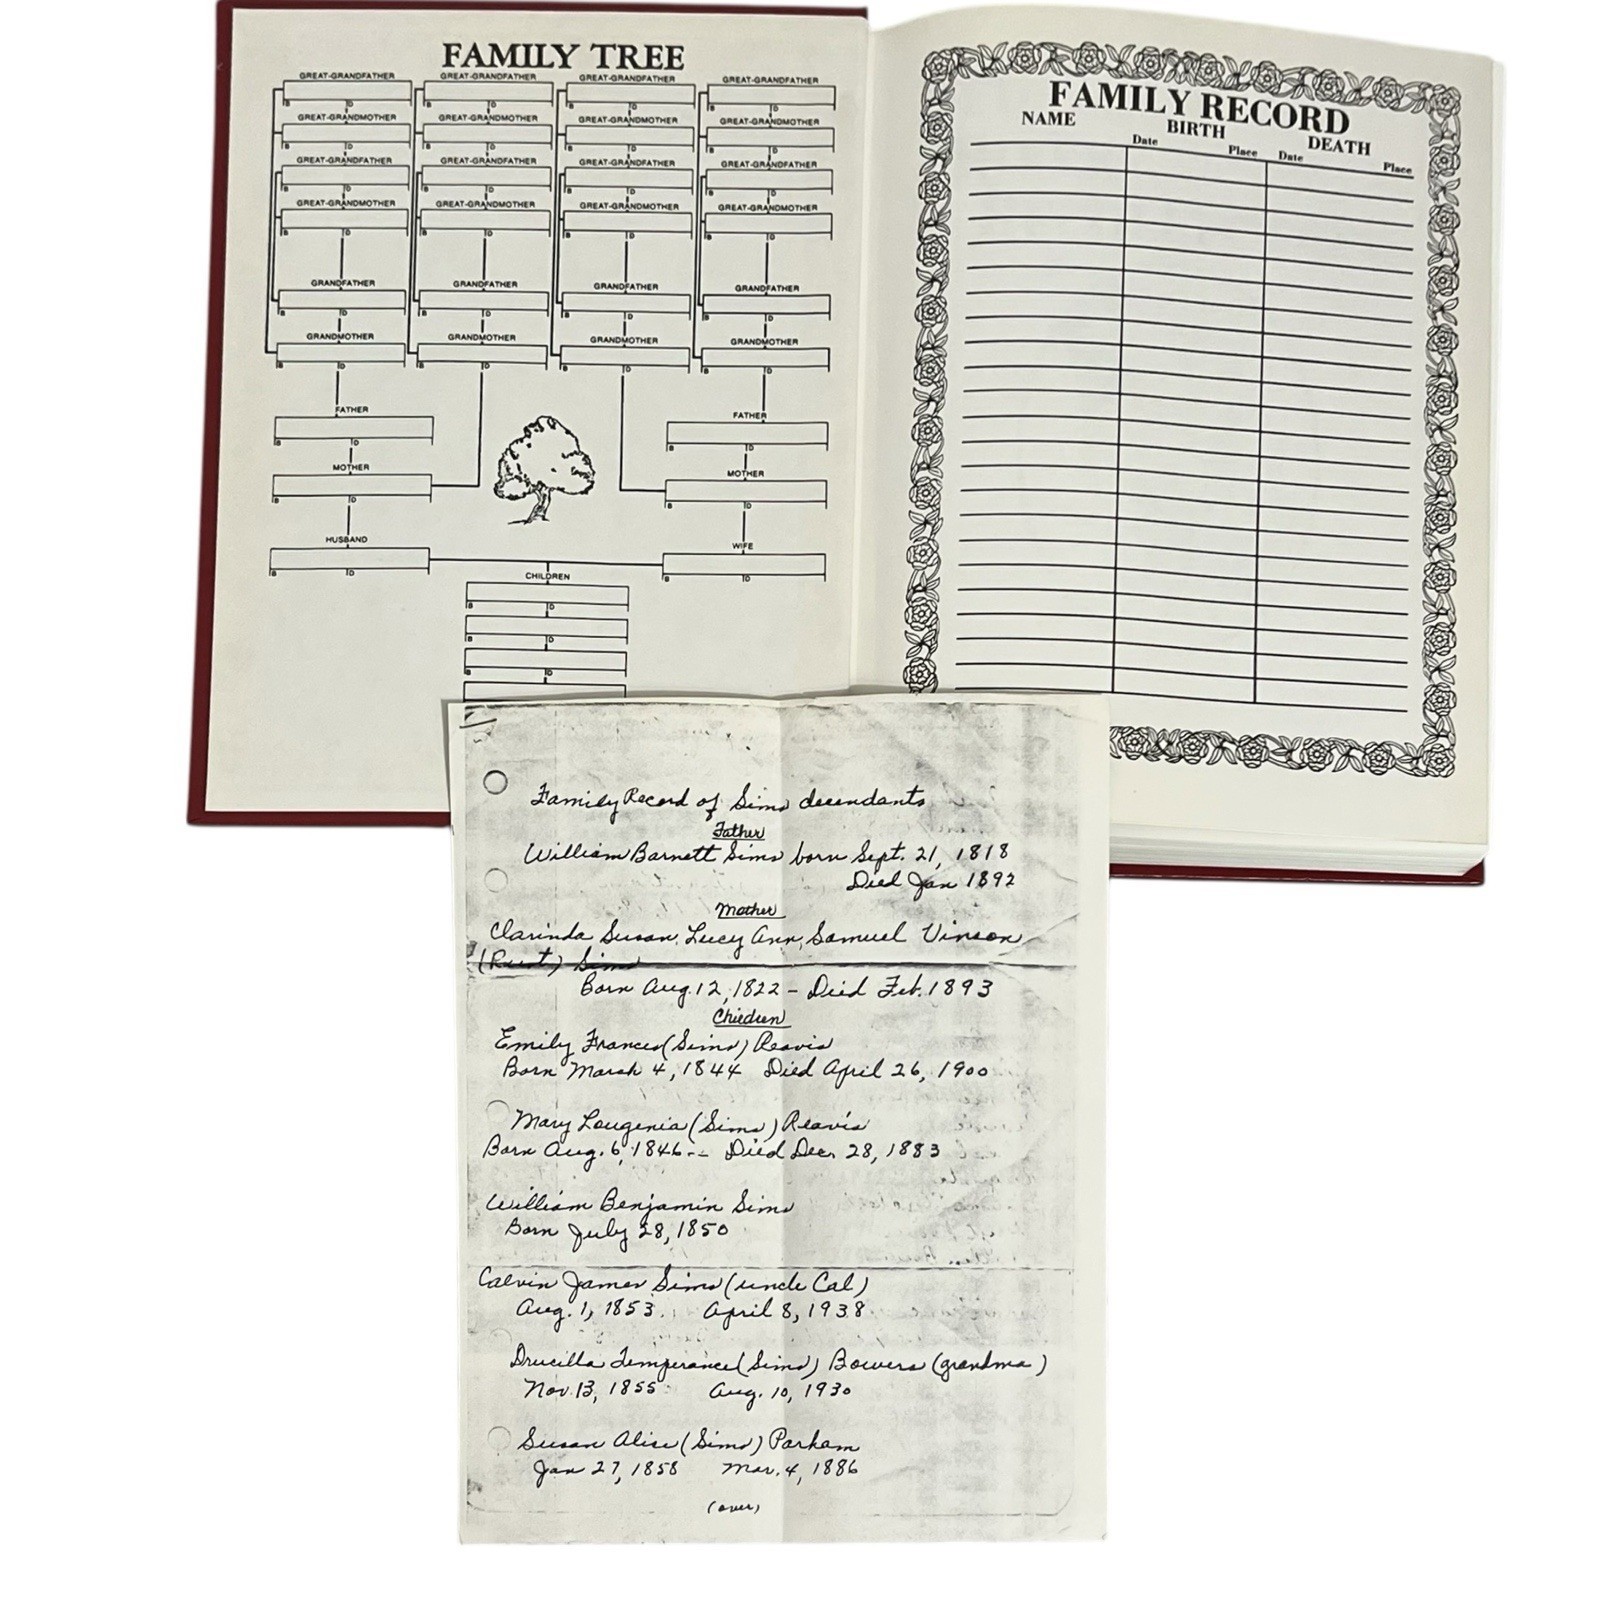 FAMILY TREE
GREAT-GRANDFATHER GREAT-GRANDFATHER GREAT-GRANDFATHER GREAT-GRANDFATHER
B D B D B D B D
GREAT-GRANDMOTHER GREAT-GRANDMOTHER GREAT-GRANDMOTHER GREAT-GRANDMOTHER
B D B D B D B D
GREAT-GRANDFATHER GREAT-GRANDFATHER GREAT-GRANDFATHER GREAT-GRANDFATHER
B D B D B D B D
GREAT-GRANDMOTHER GREAT-GRANDMOTHER GREAT-GRANDMOTHER GREAT-GRANDMOTHER
B D B D B D B D
GRANDFATHER GRANDFATHER GRANDFATHER GRANDFATHER
B D B D B D B D
GRANDMOTHER GRANDMOTHER GRANDMOTHER GRANDMOTHER
B D B D B D B D
FATHER FATHER
B D B D
MOTHER MOTHER
B D B D
HUSBAND WIFE
B D B D
CHILDREN
B D
B D
B D
FAMILY RECORD
NAME BIRTH DEATH
Date Place Date Place
Family Record of Sims decendants
Father
William Barnett Sims born Sept. 21, 1818
Died Jan 1892
Mother
Clarinda Susan, Lucy Ann, Samuel Vinson
(Rust) Sims
Born Aug. 12, 1822 - Died Feb. 1893
Children
Emily Frances (Sims) Reavis
Born March 4, 1844 Died April 26, 1900
Mary Lougenia (Sims) Reavis
Born Aug. 6, 1846 -- Died Dec. 28, 1883
William Benjamin Sims
Born July 28, 1850
Calvin James Sims (uncle Cal)
Aug. 1, 1853. April 8, 1938
Drucilla Temperance (Sims) Bowers (grandma)
Nov. 13, 1855 Aug. 10, 1930
Susan Alice (Sims) Parham
Jan 27, 1858 Mar. 4, 1886
(over)